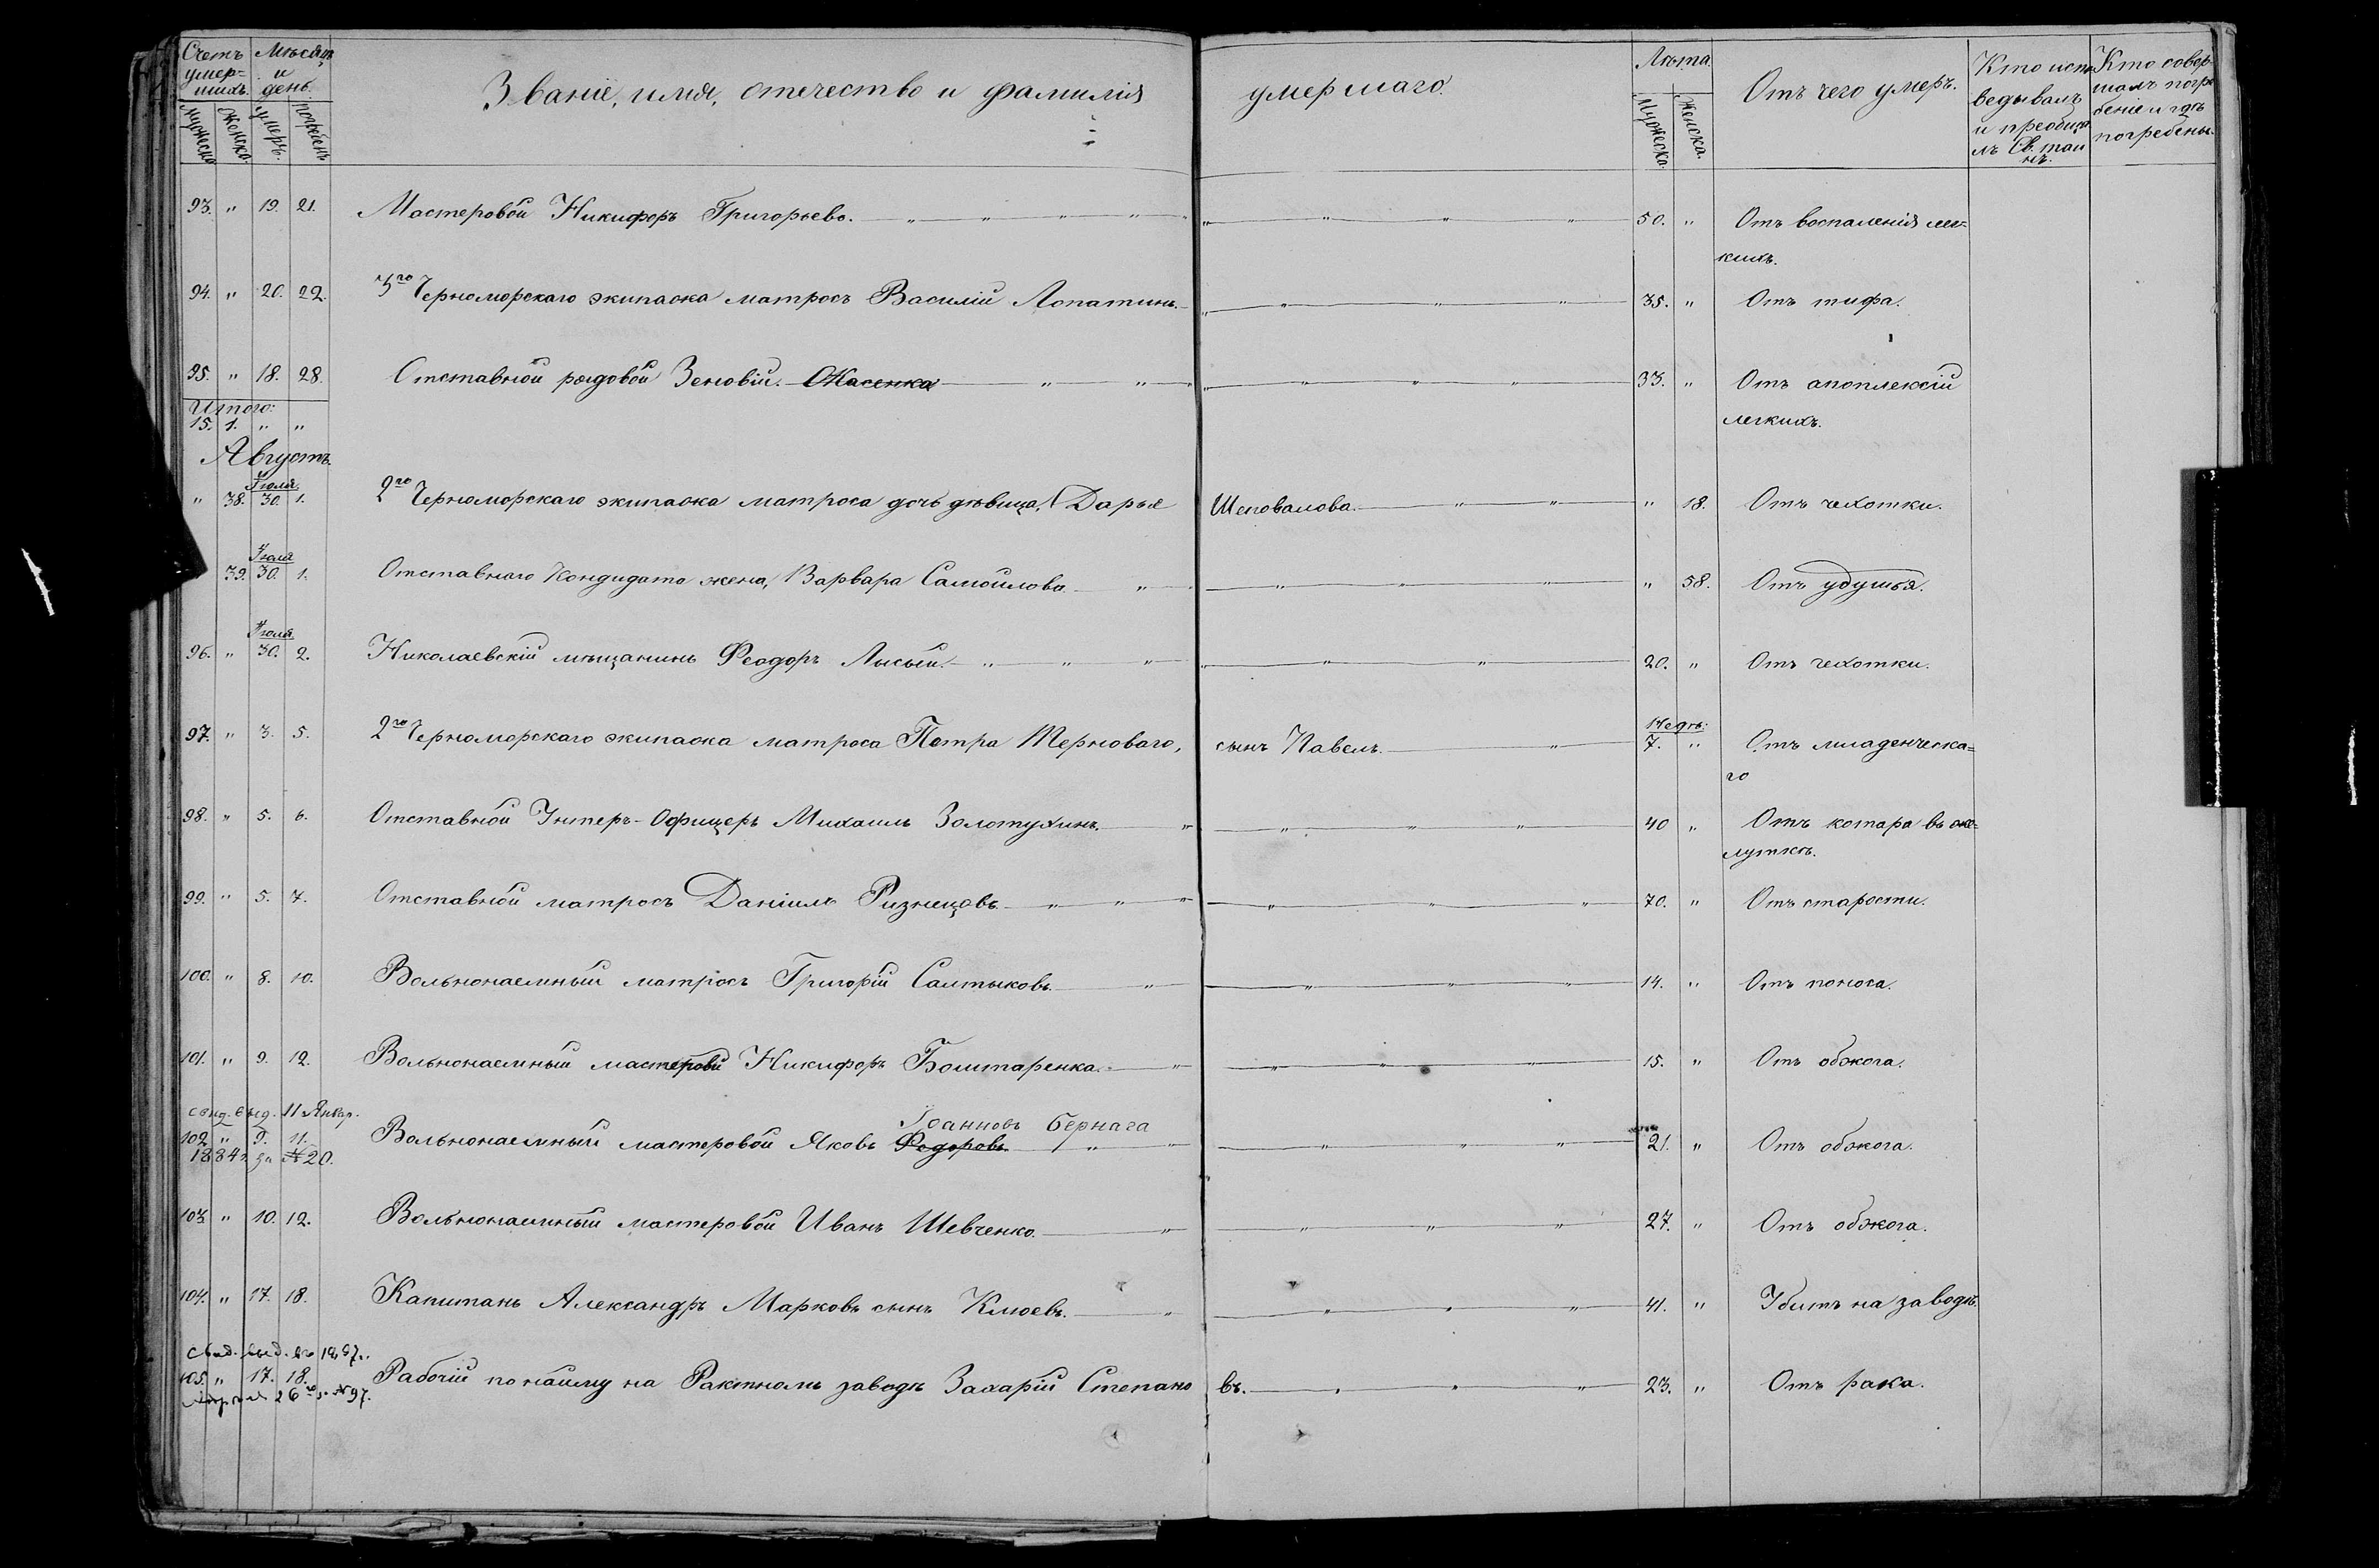 Счетъ умер-шихъ. Мѣсяцъ и день. Званіе, имя, отечество и фамилія умершаго. Лѣта. Отъ чего умеръ. Кто исповѣдывалъ и пріобщалъ Св. таинъ. Кто совершалъ погребеніе и гдѣ погребены.
Мужеска. Женска. Умеръ. Погребенъ Мужеска. Женска.
93. " 19. 21. Мастеровой Никифоръ Григорьевъ. 50. " Отъ воспаленія лег-
кихъ.
94. " 20. 22. 3го Черноморскаго экипажа матросъ Василій Лопатинъ. 35. " Отъ тифа.
95. " 18. 28. Отставной рядовой Зеновій 33. " Отъ апоплексіи
легкихъ.
Итого:
15. 1. " "
Августъ.
Іюля
" 38. 30. 1. 2го Черноморскаго экипажа матроса дочь дѣвица, Дарья Шеповалова. " 18. Отъ чехотки.
Іюля
39. 30. 1. Отставнаго Кондидата жена, Варвара Самойлова " 58. Отъ удушья.
Іюля
96. " 30. 2. Николаевскій мѣщанинъ Феодоръ Лысый. 20. " Отъ чехотки.
Недѣ:
97. " 3. 5. 2го Черноморскаго экипажа матроса Петра Терноваго, сынъ Павелъ. 7. " Отъ младенческа=
го
98. " 5. 6. Отставной Унтеръ-Офицеръ Михаилъ Золотухинъ. 40 " Отъ котара въ же-
лудкѣ.
99. " 5. 7. Отставной матросъ Даніилъ Ризнецовъ 70. " Отъ старости.
100. " 8. 10. Вольнонаемный матросъ Григорій Салтыковъ 14. " Отъ поноса.
101. " 9. 12. Вольнонаемный мастеровй Никифоръ Болтаренка. 15. " Отъ обжога.
свид. выд. 11 Январ. Іоанновъ Бернага
102 " 9. 11. Вольнонаемный мастеровой Яковъ Федоровъ 21. " Отъ обжога.
1884 г. за №20.
103. " 10. 12. Вольнонаемный мастеровой Иванъ Шевченко. 27. " Отъ обжога.
104. " 17. 18. Капитанъ Александръ Марковъ сынъ Клюевъ. 41. " Убитъ на заводѣ.
свид. выд. въ 1897.
105. " 17. 18. Рабочій по найму на Ракетномъ заводѣ Захарій Степано въ. 23. " Отъ рака.
26го за №97.